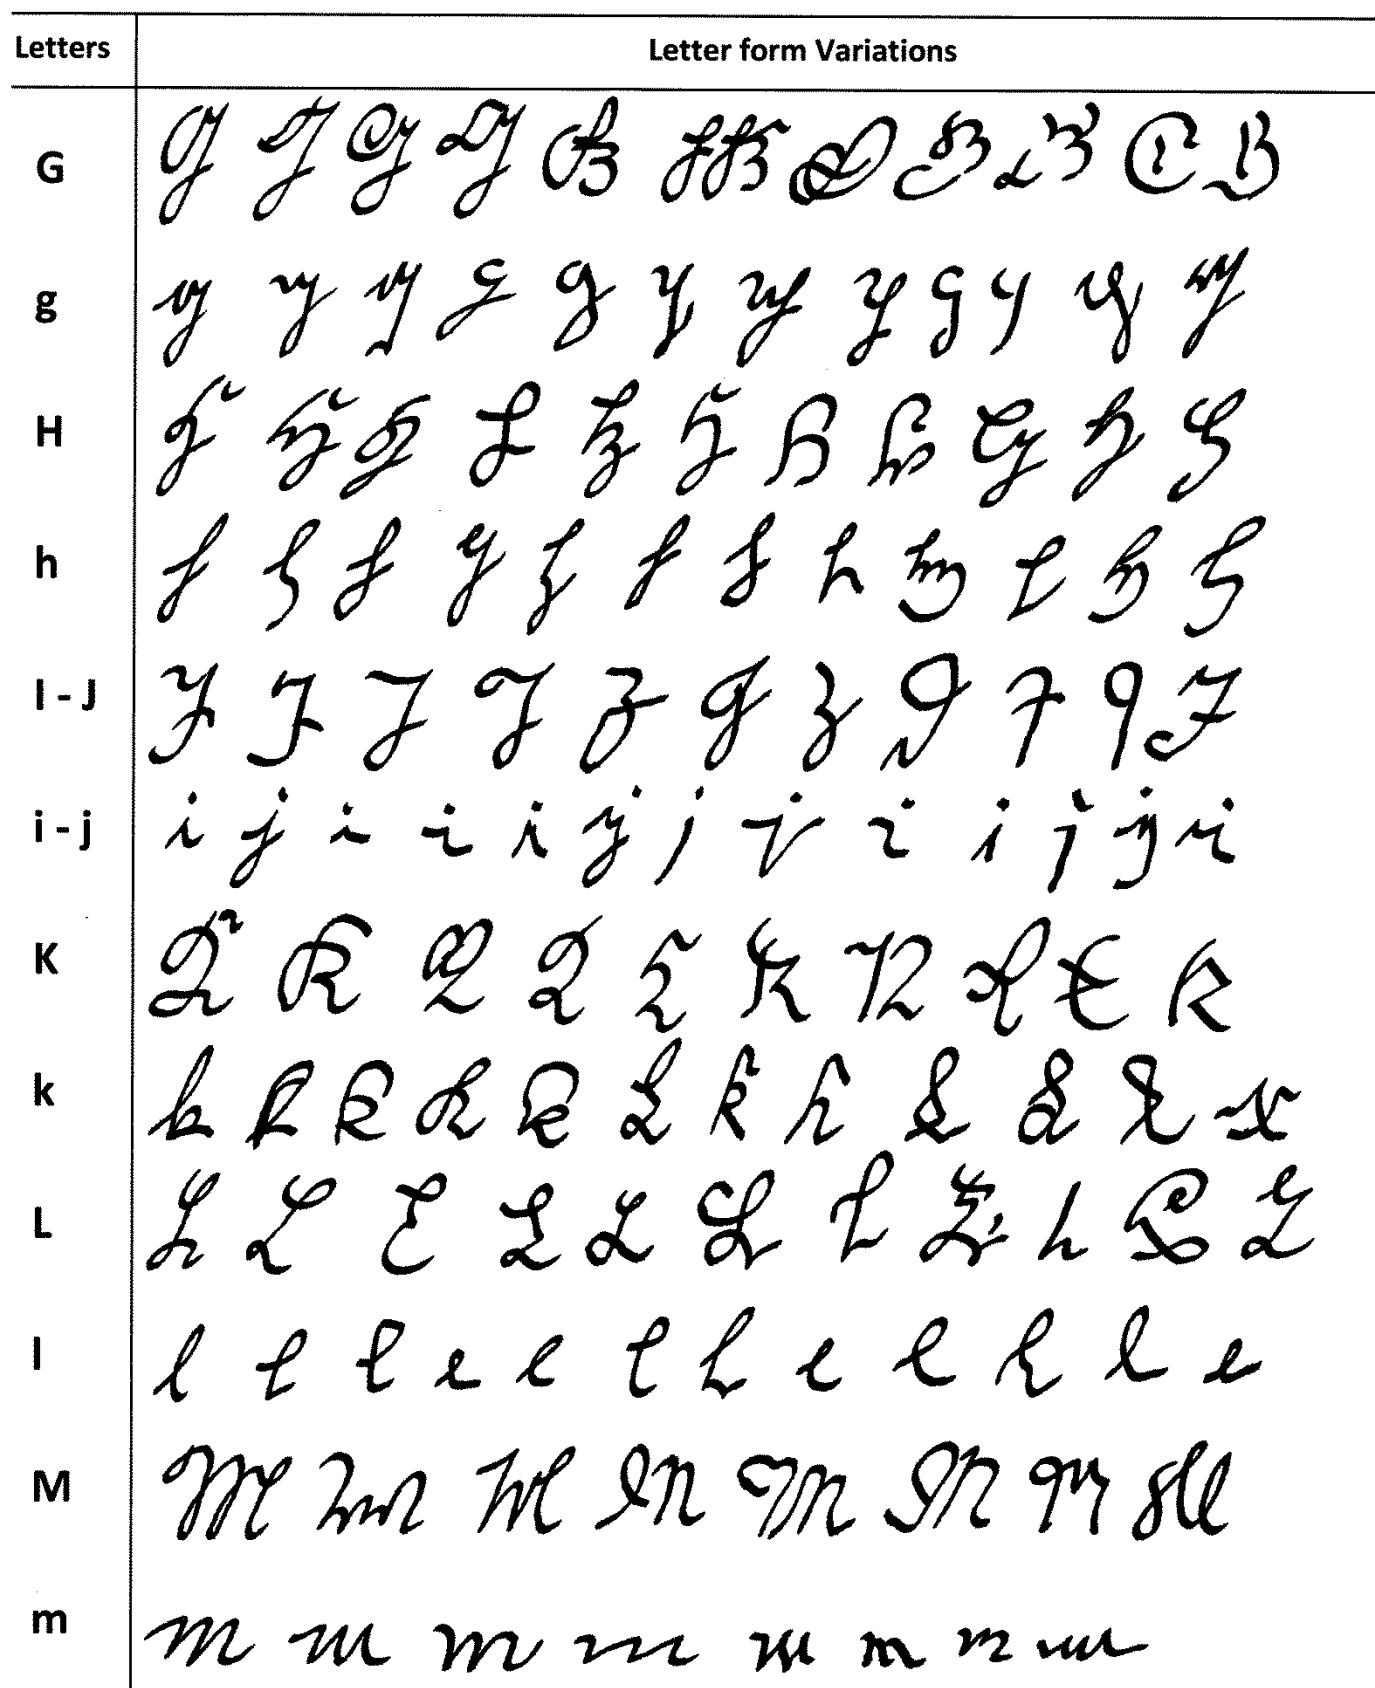 Letters Letter form Variations
G G G G G G G G G G G G
g g g g g g g g g g g g g
H H H H H H H H H H H H
h h h h h h h h h h h h h
I - J J J J J J J J J J J J
i - j i j i i i j j j i i j j i
K K K K K K K K K K K
k k k k k k k k k k k k k
L L L L L L L L L L L L
l l l l l l l l l l l l l
M M M M M M M M M
m m m m m m m m m